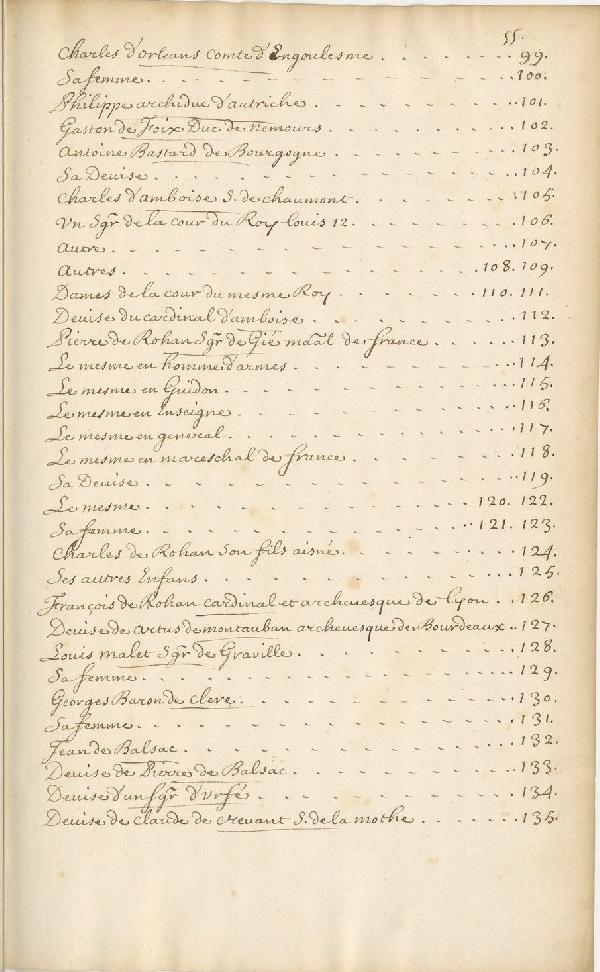 55.
Charles d'orleans comte d'Engoulesme . . . . . . . 99.
Sa femme . . . . . . . 100.
Philippe archiduc d'autriche . . . . . . . 101.
Gaston de Foix Duc de nemours . . . . . . . 102.
Antoine Bastard de Bourgogne . . . . . . . 103.
Sa Deuise . . . . . . . 104.
Charles d'amboise S. de chaumont . . . . . . . 105.
Vn Sgr de la cour du Roy louis 12 . . . . . . . 106.
Autre . . . . . . . 107.
Autres . . . . . . . 108. 109.
Dames de la cour du mesme Roy . . . . . . . 110. 111.
Deuise du cardinal d'amboise . . . . . . . 112.
Pierre de Rohan Sgr de Gié maal de france . . . . . . . 113.
Le mesme en homme d'armes . . . . . . . 114.
Le mesme en Guidon . . . . . . . 115.
Le mesme en Enseigne . . . . . . . 116.
Le mesme en general . . . . . . . 117.
Le mesme en mareschal de france . . . . . . . 118.
Sa Deuise . . . . . . . 119.
Le mesme . . . . . . . 120. 122.
Sa femme . . . . . . . 121. 123.
Charles de Rohan son fils aisné . . . . . . . 124.
Ses autres Enfans . . . . . . . 125.
François de Rohan cardinal et archeuesque de lyon . . 126.
Deuise de artus de montauban archeuesque de Bourdeaux . . 127.
Louis malet Sgr de Graville . . . . . . . 128.
Sa femme . . . . . . . 129.
Georges Baron de clere . . . . . . . 130.
Sa femme . . . . . . . 131.
Jean de Balsac . . . . . . . 132.
Deuise de Pierre de Balsac . . . . . . . 133.
Deuise d'un sgr d'Vrfé . . . . . . . 134.
Deuise de claude de creuant S. de la mothe . . . . . . . 135.